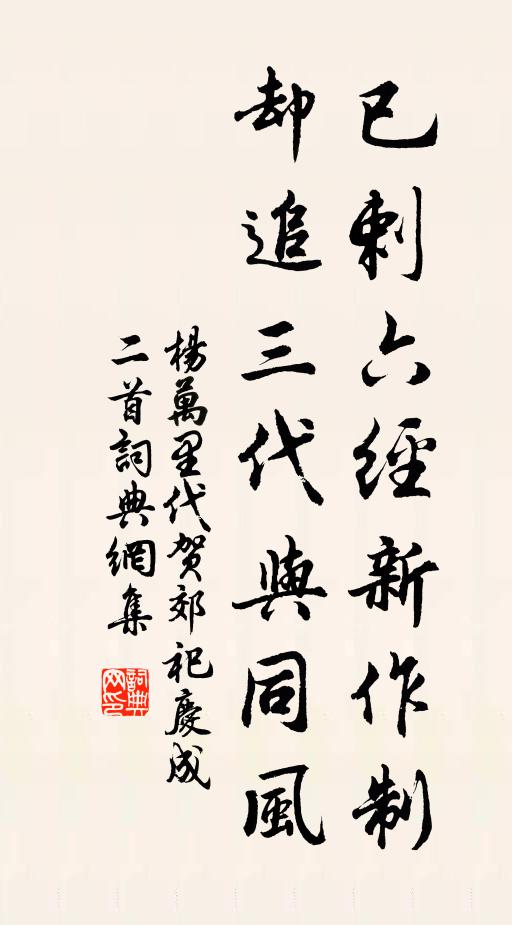 已刺六經新作制
却追三代與同風
楊萬里代賀郊祀慶成
二首詞典網集
詞典網印